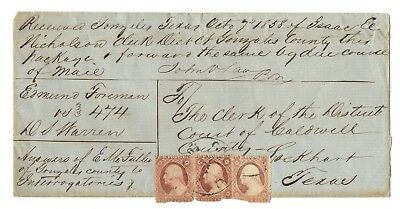 Received Gonzales Texas Octr 7th 1858 of Isaac E
Nicholson clerk Dist Ct Gonzales County this
package & forward the same by due course
of Mail
Esmund Foreman
vs 474
D S Warren
Answers of E. McFallis
of Gonzales county to
Interrogatories
To
The Clerk of the District
Court of Caldwell
County
Lockhart
Texas